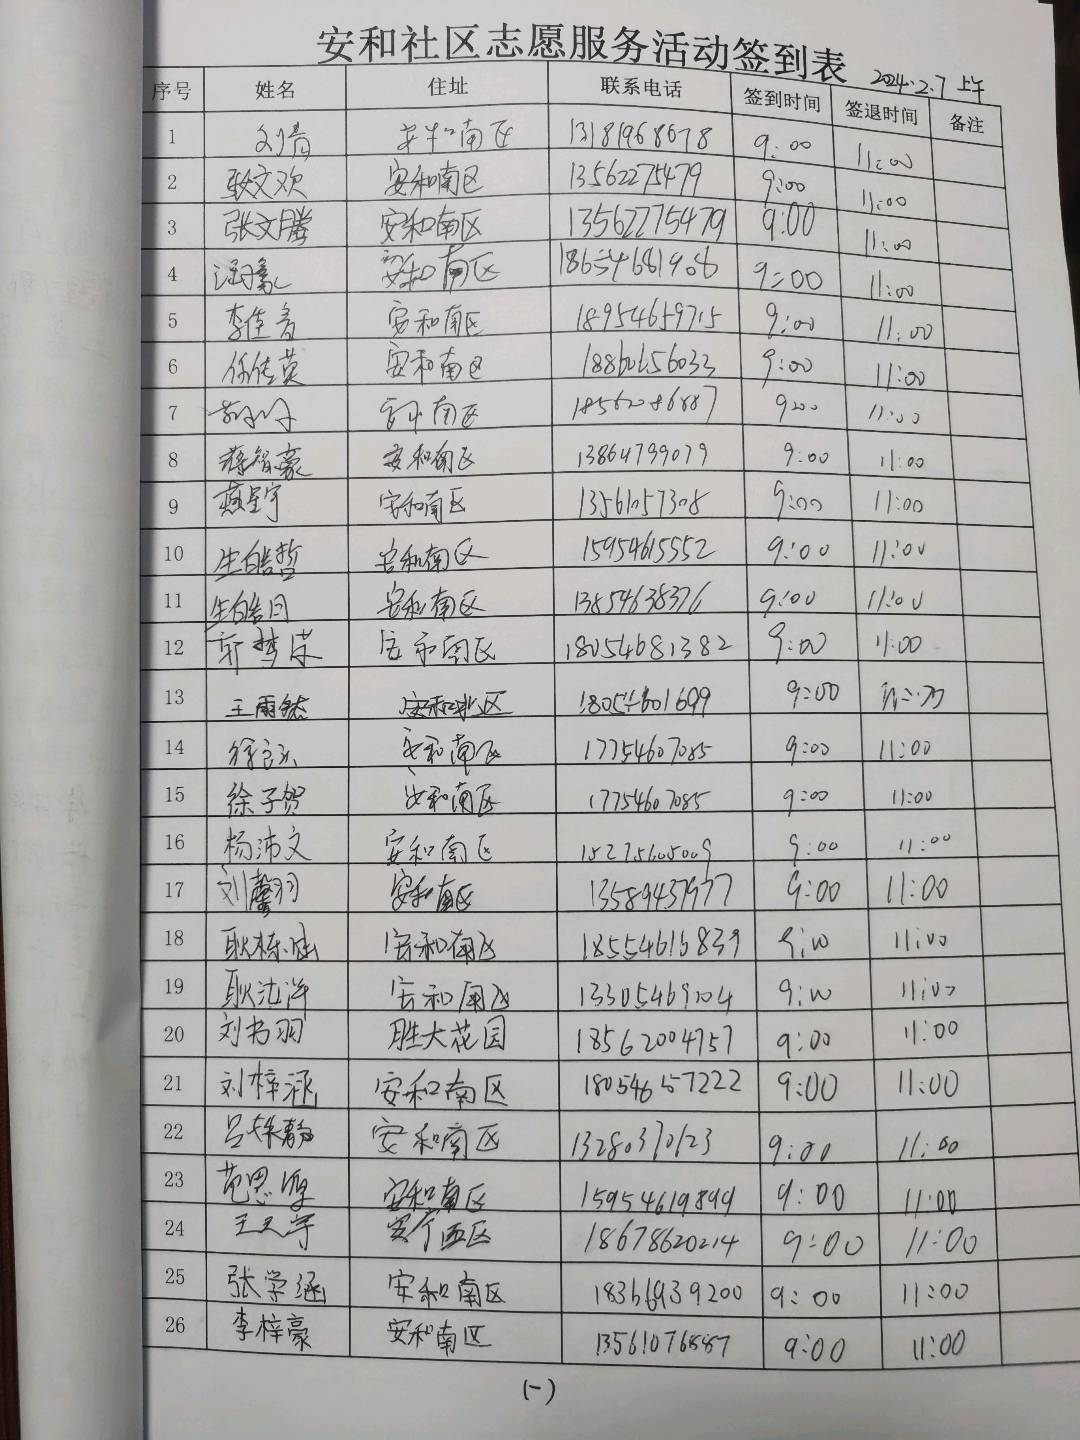 安和社区志愿服务活动签到表
2024.2.7 上午
序号 姓名 住址 联系电话 签到时间 签退时间 备注
1 刘青 南区 13181968678 9:00 11:00
2 耿文欢 安和南区 13562275479 9:00 11:00
3 张文腾 安和南区 13562275479 9:00 11:00
4 安和南区 18654681908 9:00 11:00
5 李佳音 安和南区 18954659715 9:00 11:00
6 任传英 安和南区 18860656033 9:00 11:00
7 南区 18562086887 9:00 11:00
8 蒋智豪 安和南区 13864799079 9:00 11:00
9 燕星宇 安和南区 1356057308 9:00 11:00
10 生皓哲 安和南区 15954615552 9:00 11:00
11 生皓月 安和南区 13854638376 9:00 11:00
12 安和南区 18054681382 9:00 11:00
13 王雨然 安和北区 9:00
14 安和南区 17754607085 9:00 11:00
15 徐子贺 安和南区 17754607085 9:00 11:00
16 杨沛文 安和南区 15275605009 9:00 11:00
17 刘馨羽 安和南区 13589437977 9:00 11:00
18 安和南区 18554615839 9:00 11:00
19 安和南区 13305469104 9:00 11:00
20 刘书羽 胜大花园 18562004757 9:00 11:00
21 刘梓涵 安和南区 18054657222 9:00 11:00
22 安和南区 13280370623 9:00 11:00
23 安和南区 15954619899 9:00 11:00
24 西区 18678620214 9:00 11:00
25 张学涵 安和南区 18366939200 9:00 11:00
26 李梓豪 安和南区 13561076887 9:00 11:00
(一)